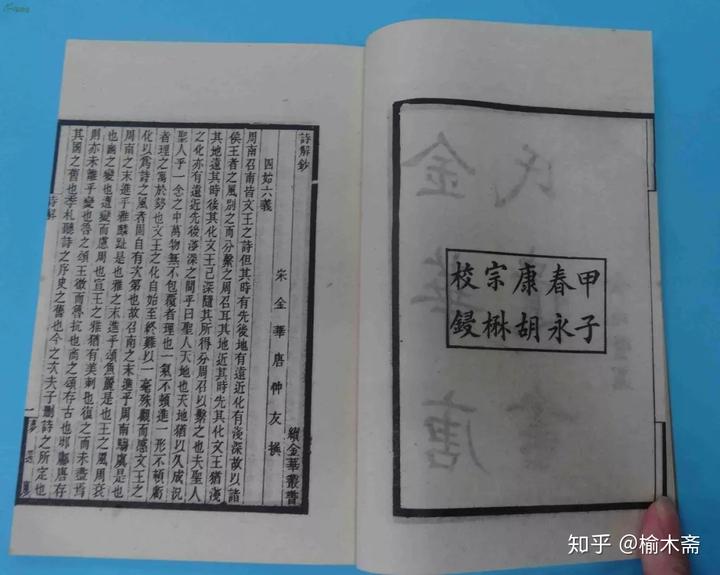 甲子
春永
康胡
宗楙
校鋟
詩解鈔 續金華叢書
宋金華唐仲友撰
四始六義
周南召南皆文王之詩但其時有先後地有遠近化有淺深故以諸
侯王者之風別之而分繫之周召耳其地近其時先其化文王猶淺
其地遠其時後其化文王已深隨其所得分周召以繫之也夫聖人
之化亦有遠近先後淺深之間乎曰聖人天地也天地猶以久成況
聖人乎一念之中萬物無不包覆者理也一氣不頓進一形不頓虧
者理之寓於勢也文王之化自始至終難以一毫殊觀而感文王之
化以爲詩之風者固自有次第也故召南之末進乎周南騶虞是也
周南之末進乎雅麟趾是也雅之末進乎頌魚麗是也王之風周衰
也豳之變也遭變而慮周也宣王之雅猶有美刺也復之而未盡焉
則亦未離乎變也魯之頌王微而魯抗也商之頌存古也邶鄘唐存
其國之舊也季札聽詩之序史之舊也今之次夫子刪詩之所定也
詩解 一
知乎 @榆木斋